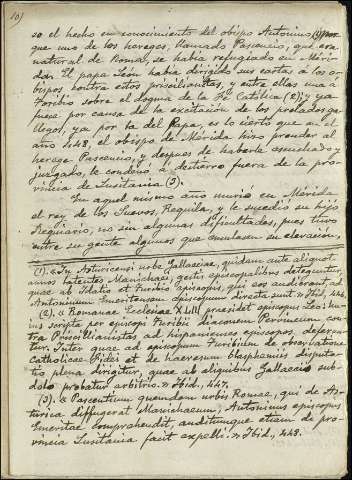 101
so el hecho en conocimiento del obispo Antonino, (1) por
que uno de los hereges, llamado Pascencio, que era
natural de Roma, se habia refugiado en Méri-
da. El papa León habia dirigido sus cartas á los o-
bispos contra estos priscilianistas, y entre ellas una á
Toribio sobre el dogma de la Fe Católica (2); y ya
fuese por causa de la excitación de los prelados ga-
llegos, ya por la del Papa, es lo cierto que en el
año 448, el obispo de Mérida hizo prender al
herege Pascencio, y despues de haberle escuchado y
juzgado, le condenó á destierro fuera de la pro-
vincia de Lusitania (3).
En aquel mismo año murió en Mérida
el rey de los Suevos, Requila, y le sucedió su hijo
Requiario, no sin algunas dificultades, pues tuvo
entre su gente algunos que emulasen su elevación,
(1). «In Asturicensi urbe Gallaeciae, quidam ante aliquot
annos latentes Manichaei, gestis episcopalibus deteguntur,
quae ab Idatio et Turibio episcopis, qui eos audierant, ad
Antoninum Emeritensem episcopum directa sunt.» Ibid, 445.
(2). «Romanae Ecclesiae XLIII praesidet episcopus Leo: hu-
ius scripta per episcopi Turibii diaconem Pervincum con-
tra Priscillianistas ad hispanienses episcopos, deferun-
tur. Inter quae ad episcopum Turibium de observatione
Catholicae Fidei et de haeresum blasphemiis disputa-
tio plena dirigitur, quae ab aliquibus Gallaecis sub-
dolo probatur arbitrio.» Ibid, 447.
(3). «Pascentium quemdam urbis Romae, qui de As-
turica diffugerat Manichaeum, Antoninus episcopus
Emeritae comprehendit, auditumque etiam de pro-
vincia Lusitania facit expelli.» Ibid, 448.